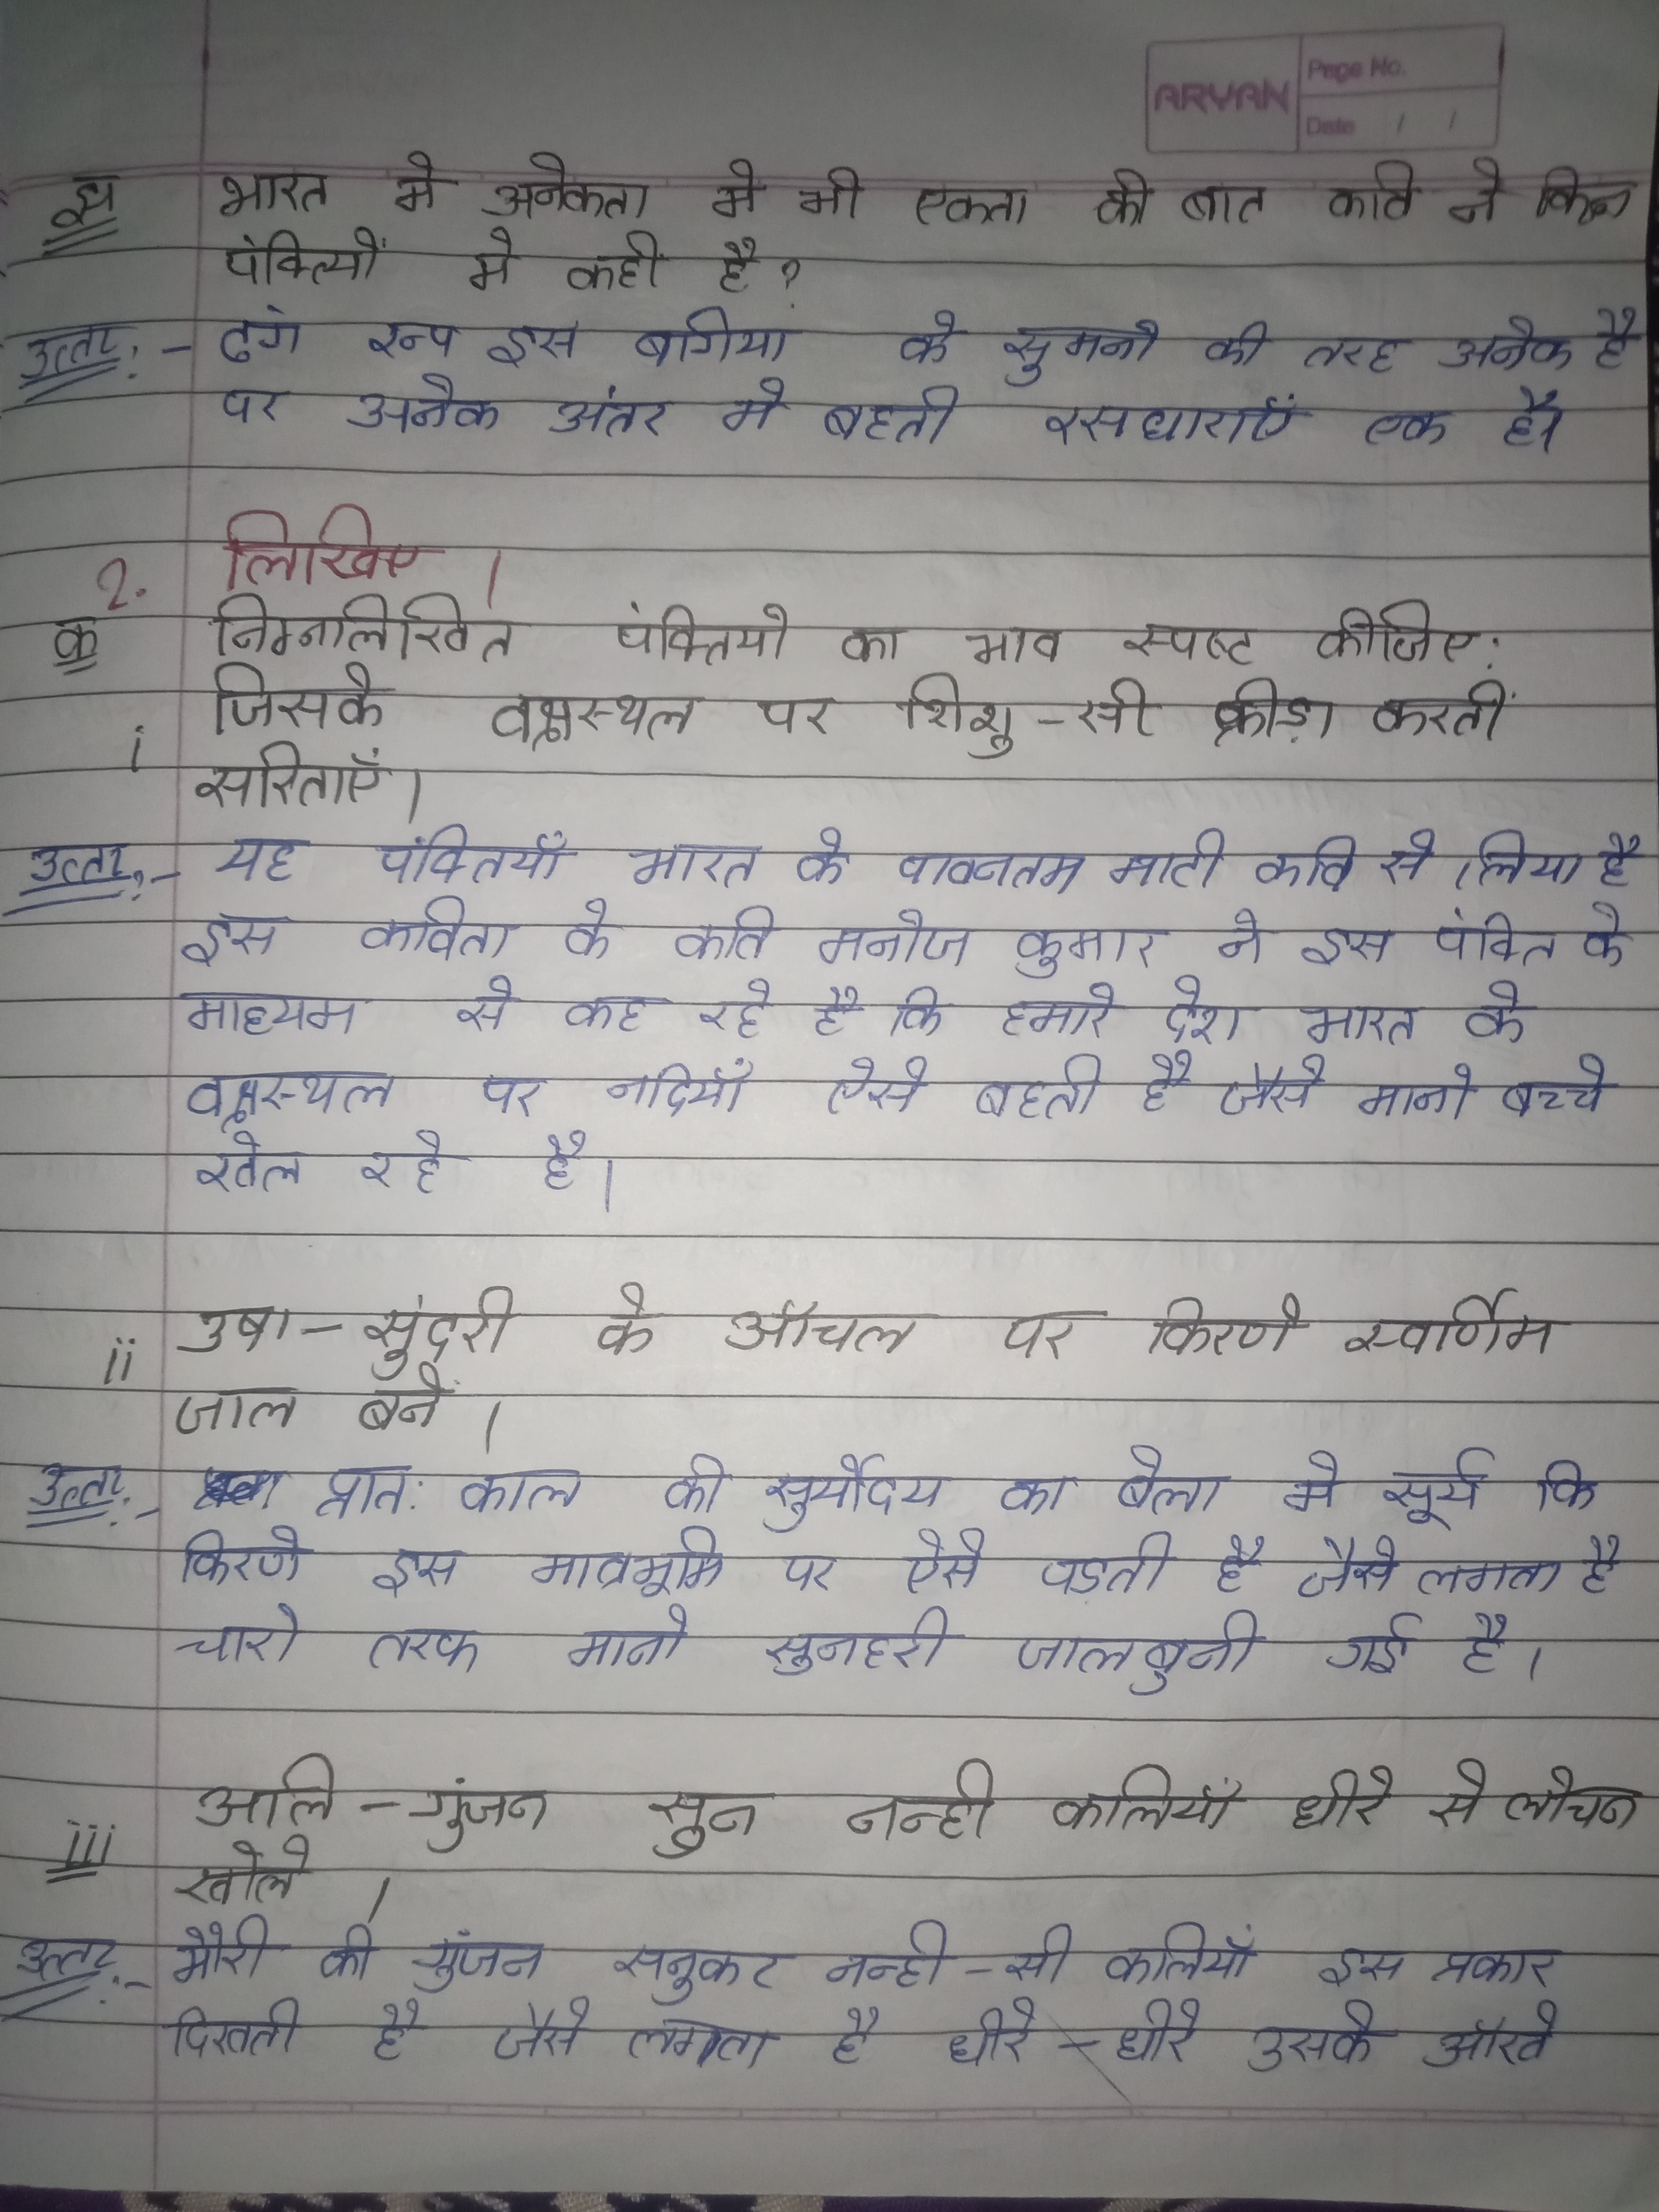 ARYAN
Page No.
Date / /
घ भारत मे अनेकता मे भी एकता की बात कवि ने किन
पंक्तियों मे कही है?
उत्तर:- ढंग रूप इस बगिया के सुमनो की तरह अनेक है
पर अनेक अंतर मे बहती रसधाराएँ एक है।
2. लिखिए ।
क निम्नलिखित पंक्तियो का भाव स्पष्ट कीजिए:
i जिसके वक्षस्थल पर शिशु-सी क्रीड़ा करतीं
सरिताएँ।
उत्तर:- यह पंक्तियाँ भारत के पावनतम माटी कवि से लिया है
इस कविता के कवि मनोज कुमार ने इस पंक्ति के
माध्यम से कह रहे है कि हमारे देश भारत के
वक्षस्थल पर नदियाँ ऐसे बहती है जैसे मानो बच्चे
खेल रहे है।
ii उषा-सुंदरी के आँचल पर किरणे स्वर्णिम
जाल बनें ।
उत्तर:- प्रात: काल की सुर्योदय का बेला मे सूर्य कि
किरणे इस मातृभूमि पर ऐसे पडती है जैसे लगता है
चारो तरफ मानो सुनहरी जाल बुनी गई है।
iii अलि-गुंजन सुन नन्ही कलियाँ धीरे से लोचन
खोले ।
उत्तर:- भौरी की गुंजन सनुकर नन्ही-सी कलियाँ इस प्रकार
दिखती है जैसे लगता है धीरे-धीरे उसके आँखे